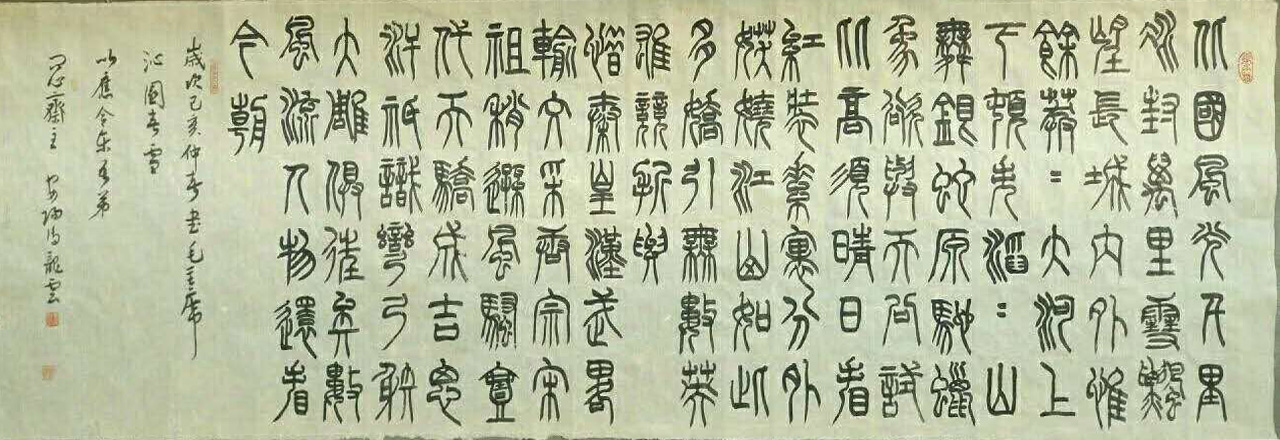 北國風光千里
冰封萬里雪飄
望長城內外惟
餘莽=大河上
下頓失滔=山
舞銀蛇原馳蠟
象欲與天公試
比高須晴日看
紅裝素裹分外
妖嬈江山如此
多嬌引無數英
雄競折腰
惜秦皇漢武略
輸文采唐宗宋
祖稍遜風騷壹
代天驕成吉思
汗祇識彎弓射
大雕俱往矣數
風流人物還看
今朝
歲次己亥仲春書毛主席
沁園春雪
以應令樂吾弟
忍齋主 龍雲